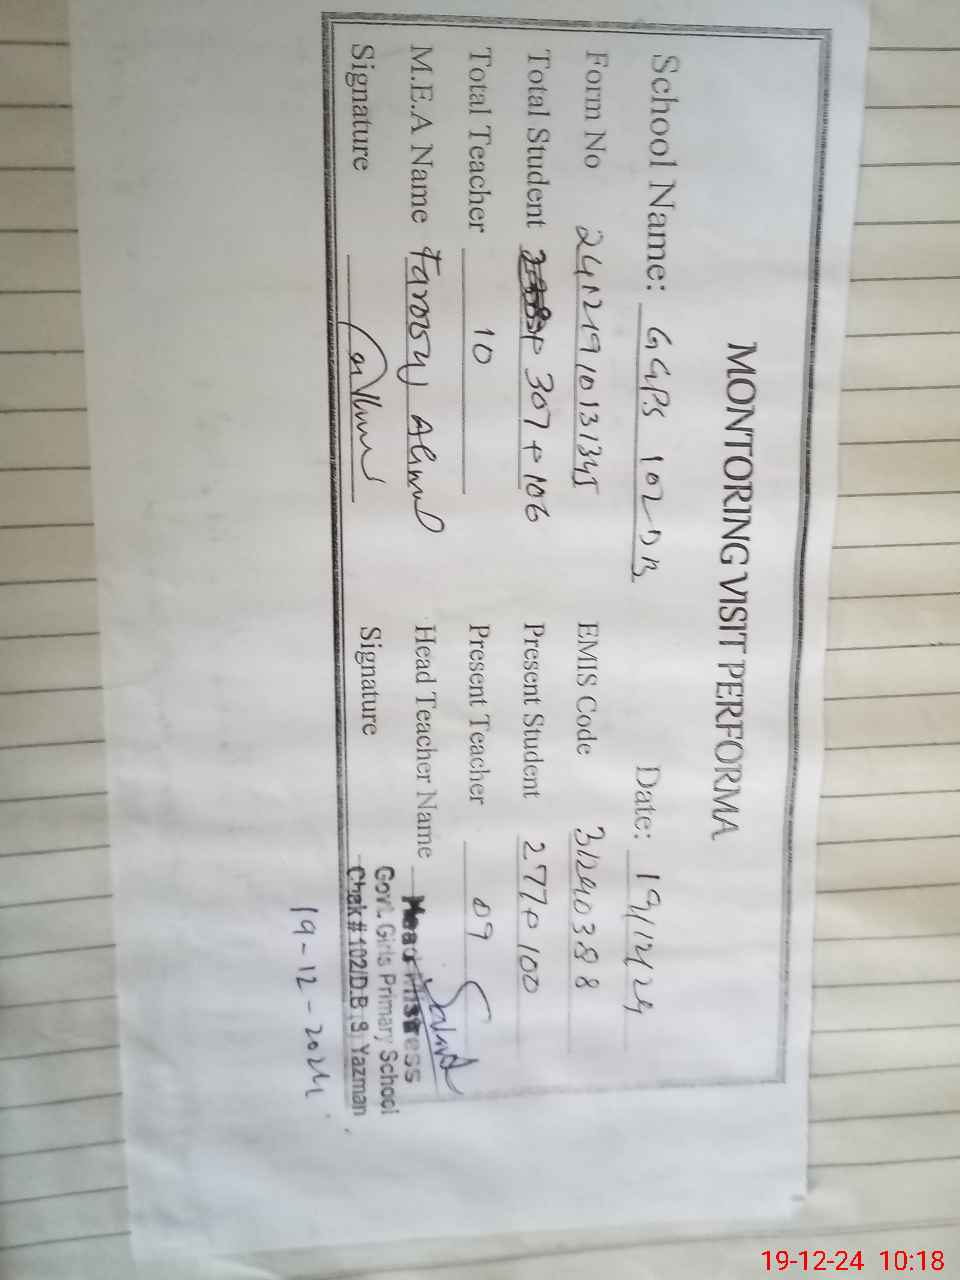 MONTORING VISIT PERFORMA
School Name: GGPS 102 DB Date: 19/12/24
Form No 24121910131345 EMIS Code 31240388
Total Student 307+106 Present Student 277+100
Total Teacher 10 Present Teacher 09
M.E.A Name Farooq Ahmad Head Teacher Name
Signature Signature
Head Mistress
Govt. Girls Primary School
Chak # 102/D.B Yazman
19-12-2024
19-12-24 10:18